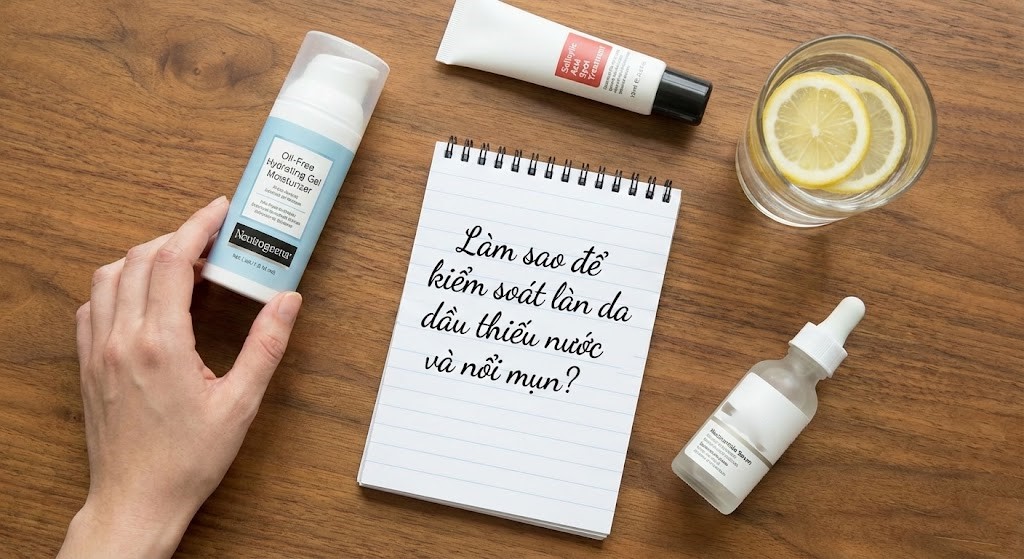 Oil-Free
Hydrating Gel
Moisturizer
Neutrogena
Salicylic
Acid
Spot
Treatment
Làm sao để
kiểm soát làn da
dầu thiếu nước
và nổi mụn?
Serum